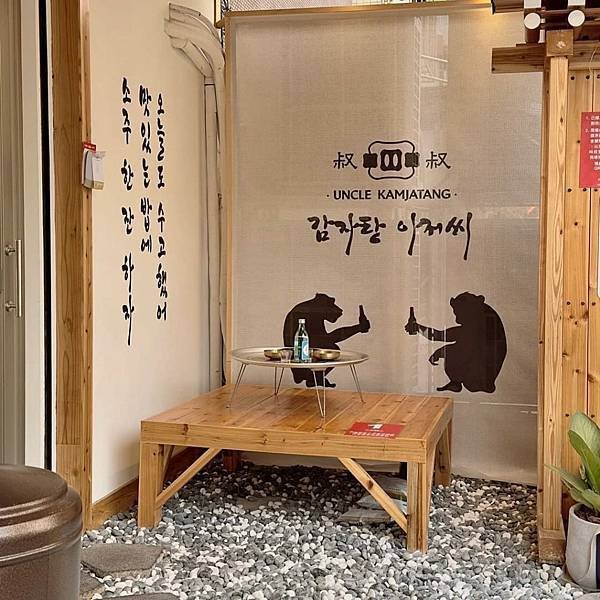 오늘도 수고했어
맛있는 밥에
소주 한 잔 하자
叔 叔
· UNCLE KAMJATANG ·
감자탕 아저씨